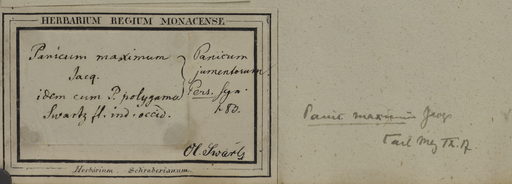 HERBARIUM REGIUM MONACENSE
Panicum maximum
Jacq.
idem cum P. polygama
Swartz fl. ind. occid.
Panicum
jumentorum
Pers. Syn.
1. 80.
Ol. Swartz
Herbarium Schreberianum.
Panic maximum Jacq
Carl Mez Th. D.